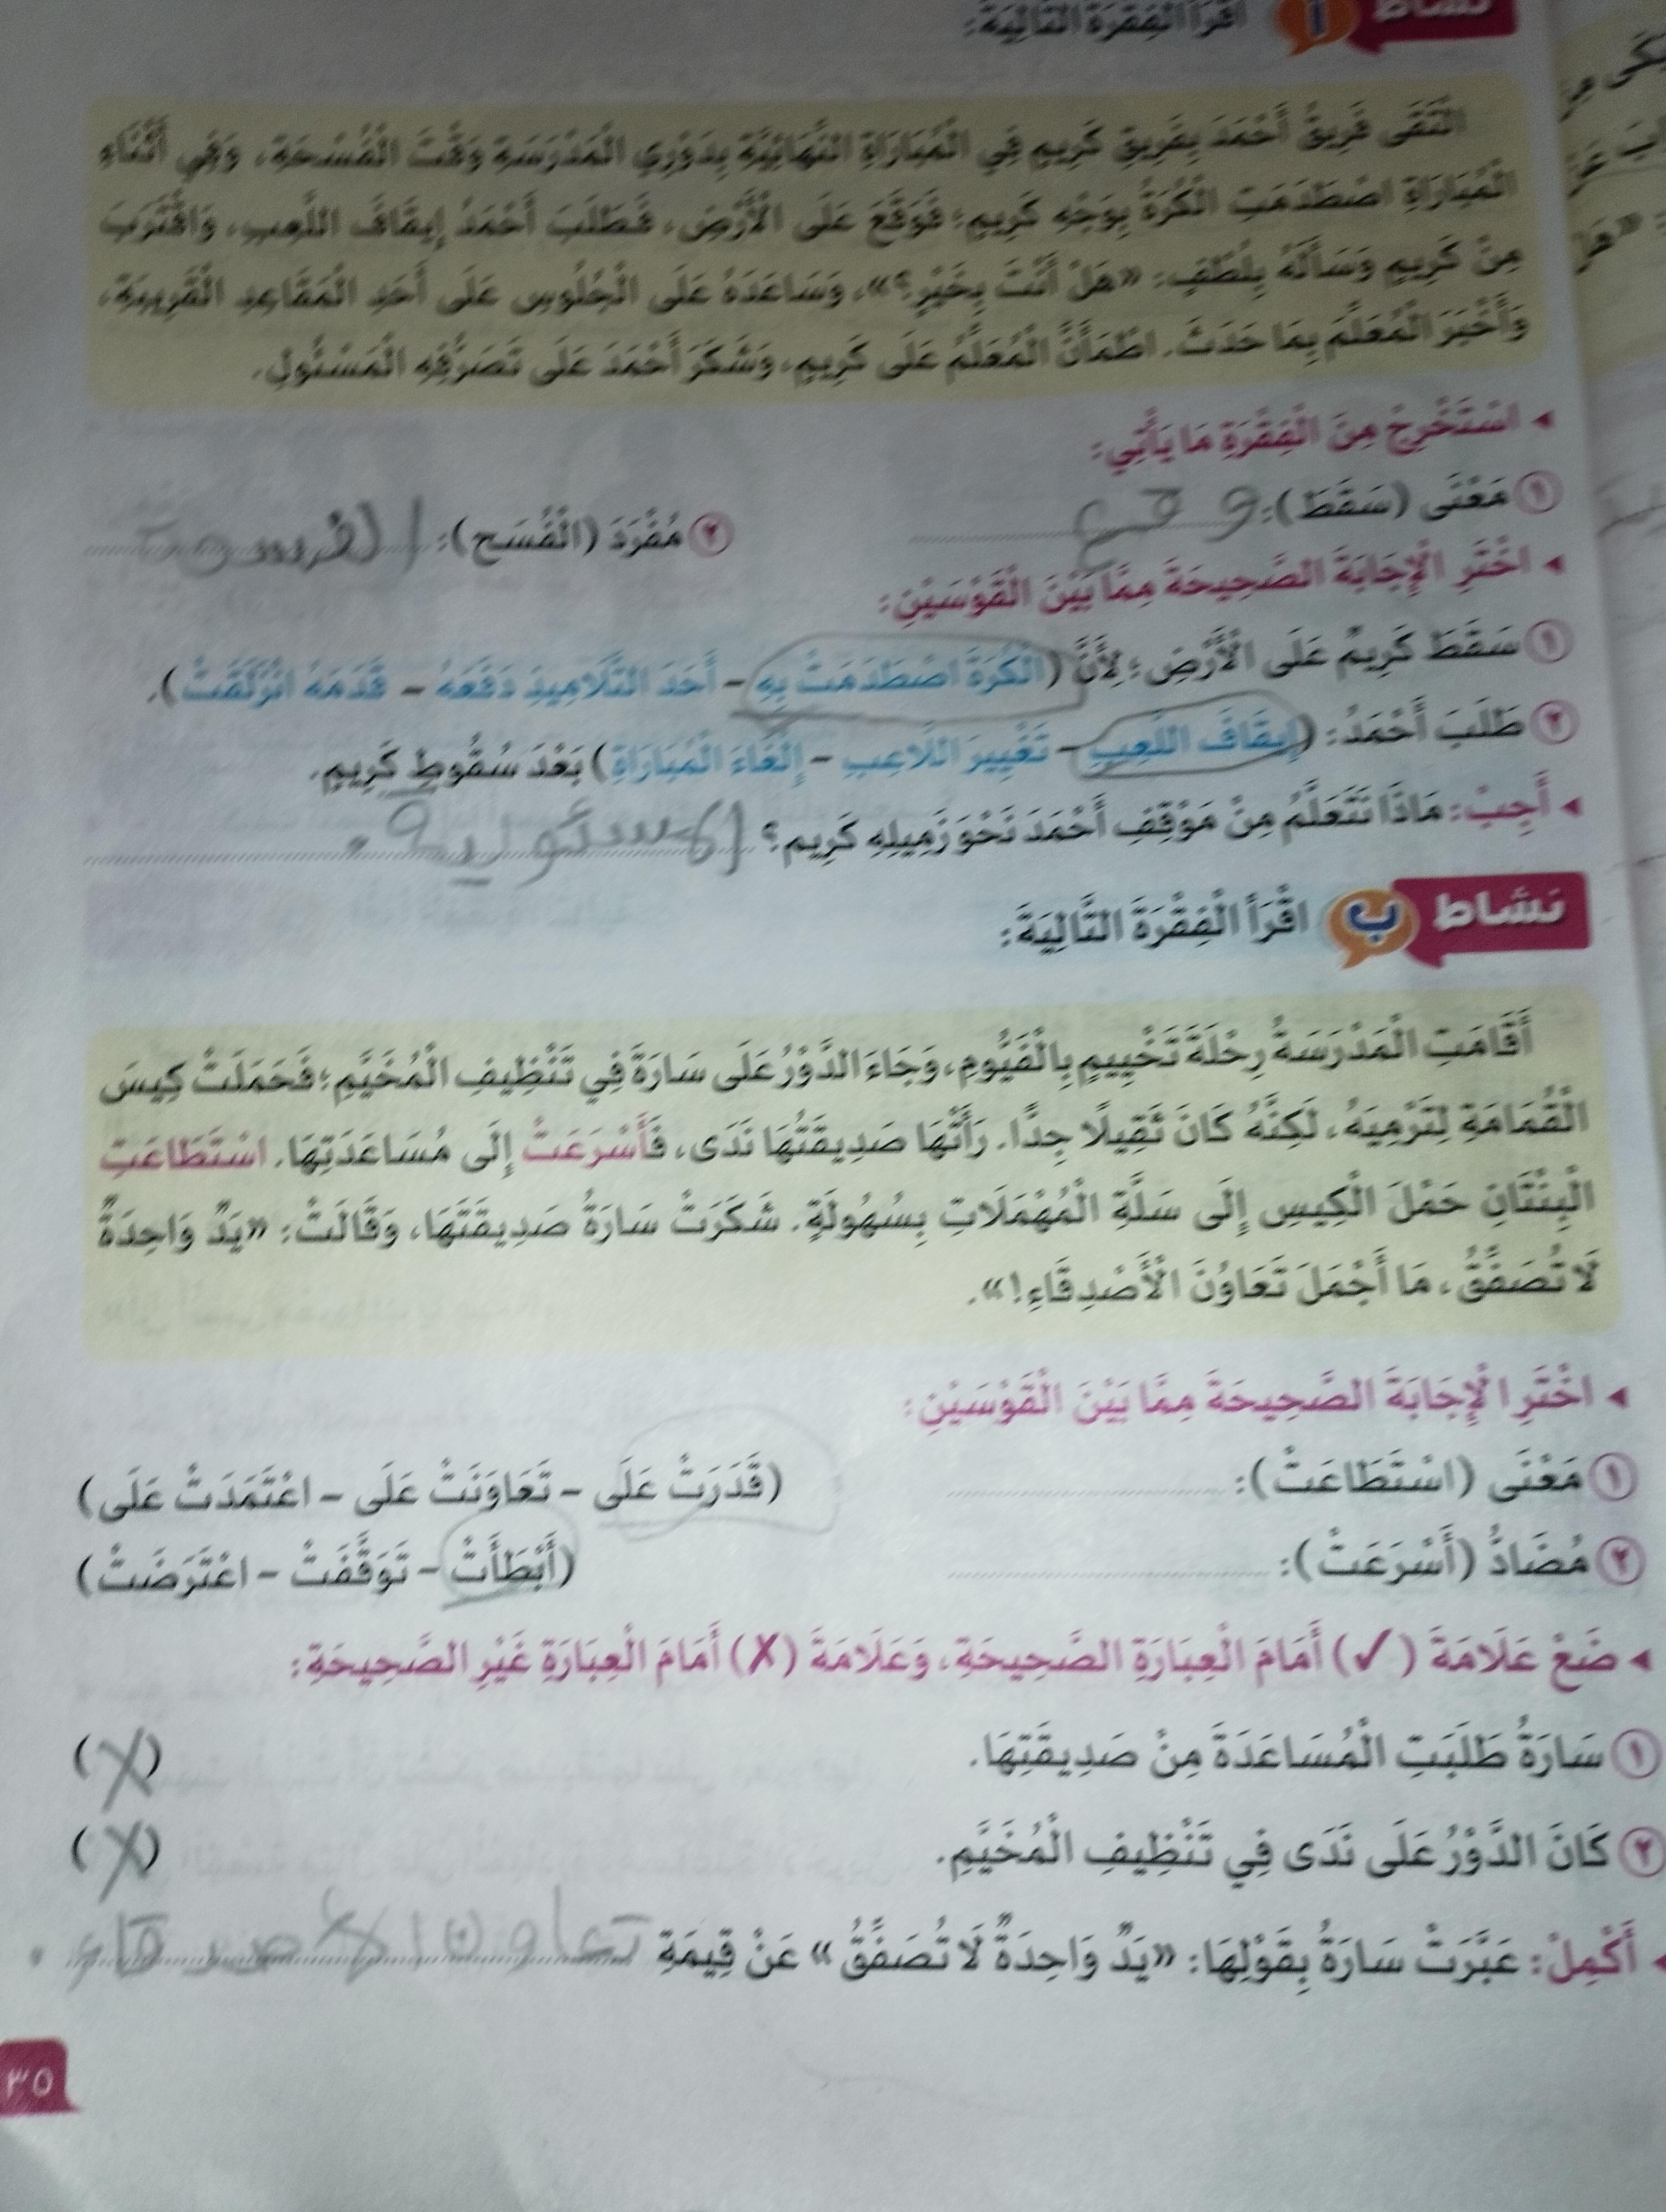 نشاط أ اقْرَأِ الْفِقْرَةَ التَّالِيَةَ:
الْتَقَى فَرِيقُ أَحْمَدَ بِفَرِيقِ كَرِيمٍ فِي الْمُبَارَاةِ النِّهَائِيَّةِ بِدَوْرِي الْمَدْرَسَةِ وَقْتَ الْفُسْحَةِ، وَفِي أَثْنَاءِ
الْمُبَارَاةِ اصْطَدَمَتِ الْكُرَةُ بِوَجْهِ كَرِيمٍ؛ فَوَقَعَ عَلَى الْأَرْضِ، فَطَلَبَ أَحْمَدُ إِيقَافَ اللَّعِبِ، وَاقْتَرَبَ
مِنْ كَرِيمٍ وَسَأَلَهُ بِلُطْفٍ: «هَلْ أَنْتَ بِخَيْرٍ؟»، وَسَاعَدَهُ عَلَى الْجُلُوسِ عَلَى أَحَدِ الْمَقَاعِدِ الْقَرِيبَةِ،
وَأَخْبَرَ الْمُعَلِّمَ بِمَا حَدَثَ. اطْمَأَنَّ الْمُعَلِّمُ عَلَى كَرِيمٍ، وَشَكَرَ أَحْمَدَ عَلَى تَصَرُّفِهِ الْمَسْئُولِ.
◂ اسْتَخْرِجْ مِنَ الْفِقْرَةِ مَا يَأْتِي:
١ مَعْنَى (سَقَطَ): وقع ٢ مُفْرَدَ (الْفُسَحِ): الفسحة
◂ اخْتَرِ الْإِجَابَةَ الصَّحِيحَةَ مِمَّا بَيْنَ الْقَوْسَيْنِ:
١ سَقَطَ كَرِيمٌ عَلَى الْأَرْضِ؛ لِأَنَّ (الْكُرَةَ اصْطَدَمَتْ بِهِ – أَحَدَ التَّلَامِيذِ دَفَعَهُ – قَدَمَهُ انْزَلَقَتْ).
٢ طَلَبَ أَحْمَدُ: (إِيقَافَ اللَّعِبِ – تَغْيِيرَ اللَّاعِبِ – إِلْغَاءَ الْمُبَارَاةِ) بَعْدَ سُقُوطِ كَرِيمٍ.
◂ أَجِبْ: مَاذَا نَتَعَلَّمُ مِنْ مَوْقِفِ أَحْمَدَ نَحْوَ زَمِيلِهِ كَرِيم؟ المسئولية.
نشاط ب اقْرَأِ الْفِقْرَةَ التَّالِيَةَ:
أَقَامَتِ الْمَدْرَسَةُ رِحْلَةَ تَخْيِيمٍ بِالْفَيُّومِ، وَجَاءَ الدَّوْرُ عَلَى سَارَةَ فِي تَنْظِيفِ الْمُخَيَّمِ؛ فَحَمَلَتْ كِيسَ
الْقُمَامَةِ لِتَرْمِيَهُ، لَكِنَّهُ كَانَ ثَقِيلًا جِدًّا. رَأَتْهَا صَدِيقَتُهَا نَدَى، فَأَسْرَعَتْ إِلَى مُسَاعَدَتِهَا. اسْتَطَاعَتِ
الْبِنْتَانِ حَمْلَ الْكِيسِ إِلَى سَلَّةِ الْمُهْمَلَاتِ بِسُهُولَةٍ. شَكَرَتْ سَارَةُ صَدِيقَتَهَا، وَقَالَتْ: «يَدٌ وَاحِدَةٌ
لَا تُصَفِّقُ، مَا أَجْمَلَ تَعَاوُنَ الْأَصْدِقَاءِ!».
◂ اخْتَرِ الْإِجَابَةَ الصَّحِيحَةَ مِمَّا بَيْنَ الْقَوْسَيْنِ:
١ مَعْنَى (اسْتَطَاعَتْ): (قَدَرَتْ عَلَى – تَعَاوَنَتْ عَلَى – اعْتَمَدَتْ عَلَى)
٢ مُضَادُّ (أَسْرَعَتْ): (أَبْطَأَتْ – تَوَقَّفَتْ – اعْتَرَضَتْ)
◂ ضَعْ عَلَامَةَ (✓) أَمَامَ الْعِبَارَةِ الصَّحِيحَةِ، وَعَلَامَةَ (✗) أَمَامَ الْعِبَارَةِ غَيْرِ الصَّحِيحَةِ:
١ سَارَةُ طَلَبَتِ الْمُسَاعَدَةَ مِنْ صَدِيقَتِهَا. (✗)
٢ كَانَ الدَّوْرُ عَلَى نَدَى فِي تَنْظِيفِ الْمُخَيَّمِ. (✗)
◂ أَكْمِلْ: عَبَّرَتْ سَارَةُ بِقَوْلِهَا: «يَدٌ وَاحِدَةٌ لَا تُصَفِّقُ» عَنْ قِيمَةِ تعاون الأصدقاء.
٣٥